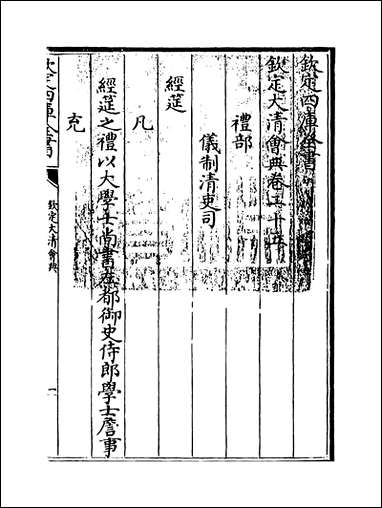 欽定四庫全書
欽定大清會典卷二十五
禮部
儀制清吏司
經筵
凡
經筵之禮以大學士尚書左都御史侍郎學士詹事
充
欽定四庫全書
欽定大清會典